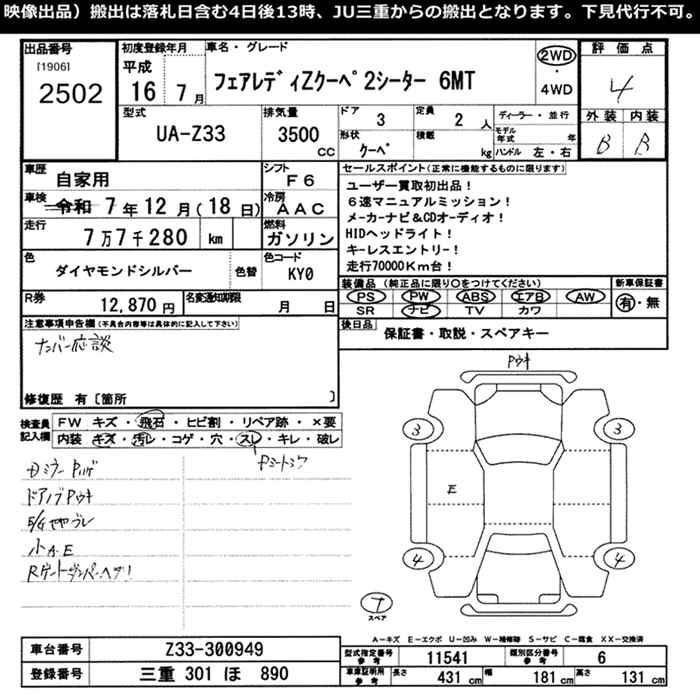 映像出品）搬出は落札日含む4日後13時、JU三重からの搬出となります。下見代行不可。
出品番号
[1906]
2502
初度登録年月
平成
16 7月
車名・グレード
フェアレディZクーペ2シーター 6MT
2WD
・
4WD
評価点
4
型式
UA-Z33
排気量
3500
cc
ドア
3
定員
2人
形状
クーペ
積載
kg
ディーラー・並行
モデル年式 年
ハンドル 左・右
外装 内装
B B
車歴
自家用
シフト
F6
車検
令和 7年12月(18日)
冷房
AAC
走行
7万7千280 km
燃料
ガソリン
色
ダイヤモンドシルバー
色替
色コード
KY0
R券
12,870円
名変通知期限
月 日
セールスポイント(正常に機能するものに限ります)
ユーザー買取初出品！
6速マニュアルミッション！
メーカーナビ&CDオーディオ！
HIDヘッドライト！
キーレスエントリー！
走行70000Km台！
装備品(純正品に限り○をつけてください)
PS PW ABS エアB AW
SR ナビ TV カワ
新車保証書
有・無
後日品
保証書・取説・スペアキー
注意事項申告欄(不具合内容等は具体的に記入して下さい)
ナンバー応談
修復歴 有〔箇所 〕
検査員記入欄
FW キズ・飛石・ヒビ割・リペア跡・×要
内装 キズ・汚レ・コゲ・穴・スレ・キレ・破レ
ドアノブPウキ
E/Gヤヤブレ
小A.E
Pウキ
3
3
E
4
4
スペア
A-キズ E-エクボ U-凹み W-補修跡 S-サビ C-腐食 XX-交換済
車台番号
Z33-300949
登録番号
三重 301 ほ 890
型式指定番号
参考
11541
類別区分番号
参考
6
車庫証明用
参考
長さ
431 cm
幅
181 cm
高さ
131 cm